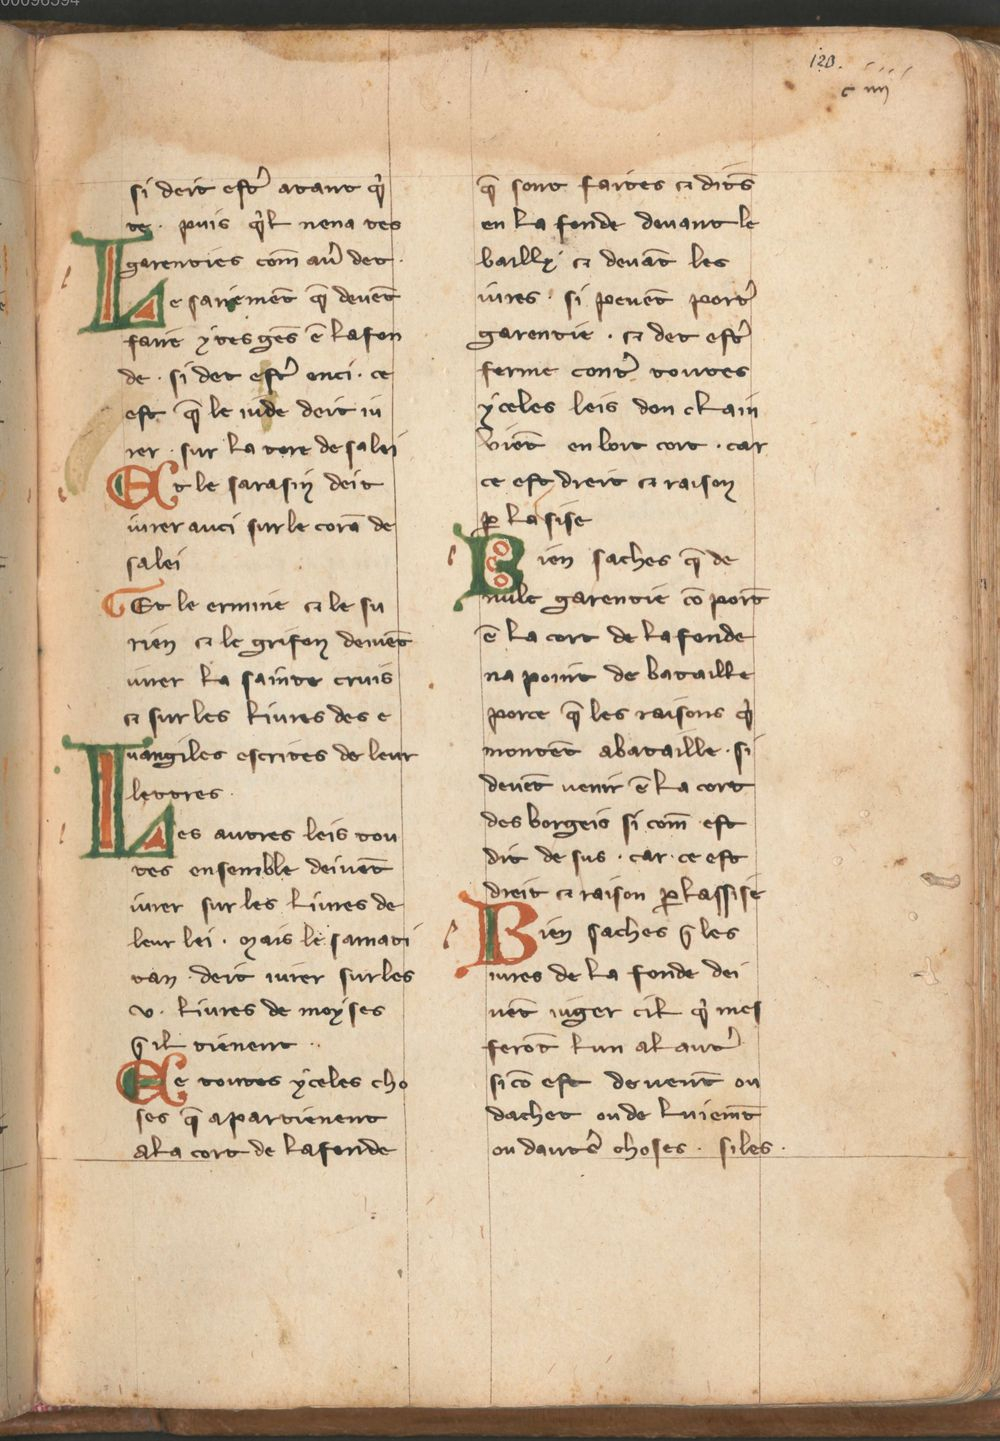 00096594
120.
c iiij
si deit estr̉ atant q̉
te . puis q̉l nena tes
garenties com̄ aũ det .
Le sariement̄ q̄ deuent̄
faire ytes gēs ē la fon
de . si det estr̉ enci . ce
est q̄ le iude deit iu
rer . sur la tore de sa lei
Et le sarasin deit
iurer auci sur le corā de
sa lei
Et le ermine ⁊ le su
rien ⁊ le grifon deuient̄
iurer la sainte cruis
⁊ sur les liures des e
uangiles escrites de leur
lettres .
Les autres leis tou
tes ensemble deiuent̄
iurer sur les liures de
leur lei . mais le samari
tan . deit iurer sur les
v . liures de moyses
q̄ il tienent ..
De toutes yceles cho
ses q̄ apartienent
a la cort de la fonde
q̄ sont faites ⁊ dit̄s
en la fonde douant le
bailly ⁊ deuāt les
iures . si peuent̄ portr̉
garentie . ⁊ det estr̉
ferme contr̉ toutes
yceles leis don clain
vient̄ en lort cort . car
ce est dreit ⁊ raison
p̱ la sise
Bien saches q̄ de
nule garentie cō port̄
ē la cort de la fonde
na point de bataille
porce q̄ les raisons q̉
montent̄ abataille . si
deuent̄ uenir ē la cort
des borgeis si com̄ est
dit de sus . car . ce est
dreit ⁊ raison p̱ lassise
Bien saches q̄ les
iures de la fonde dei
uēt iuger cil q̉ mes
feront̄ lun al autr̉
si cō est deuent̄ ou
dachet ou de luiem̄t
ou dautr̉e choses . si les .